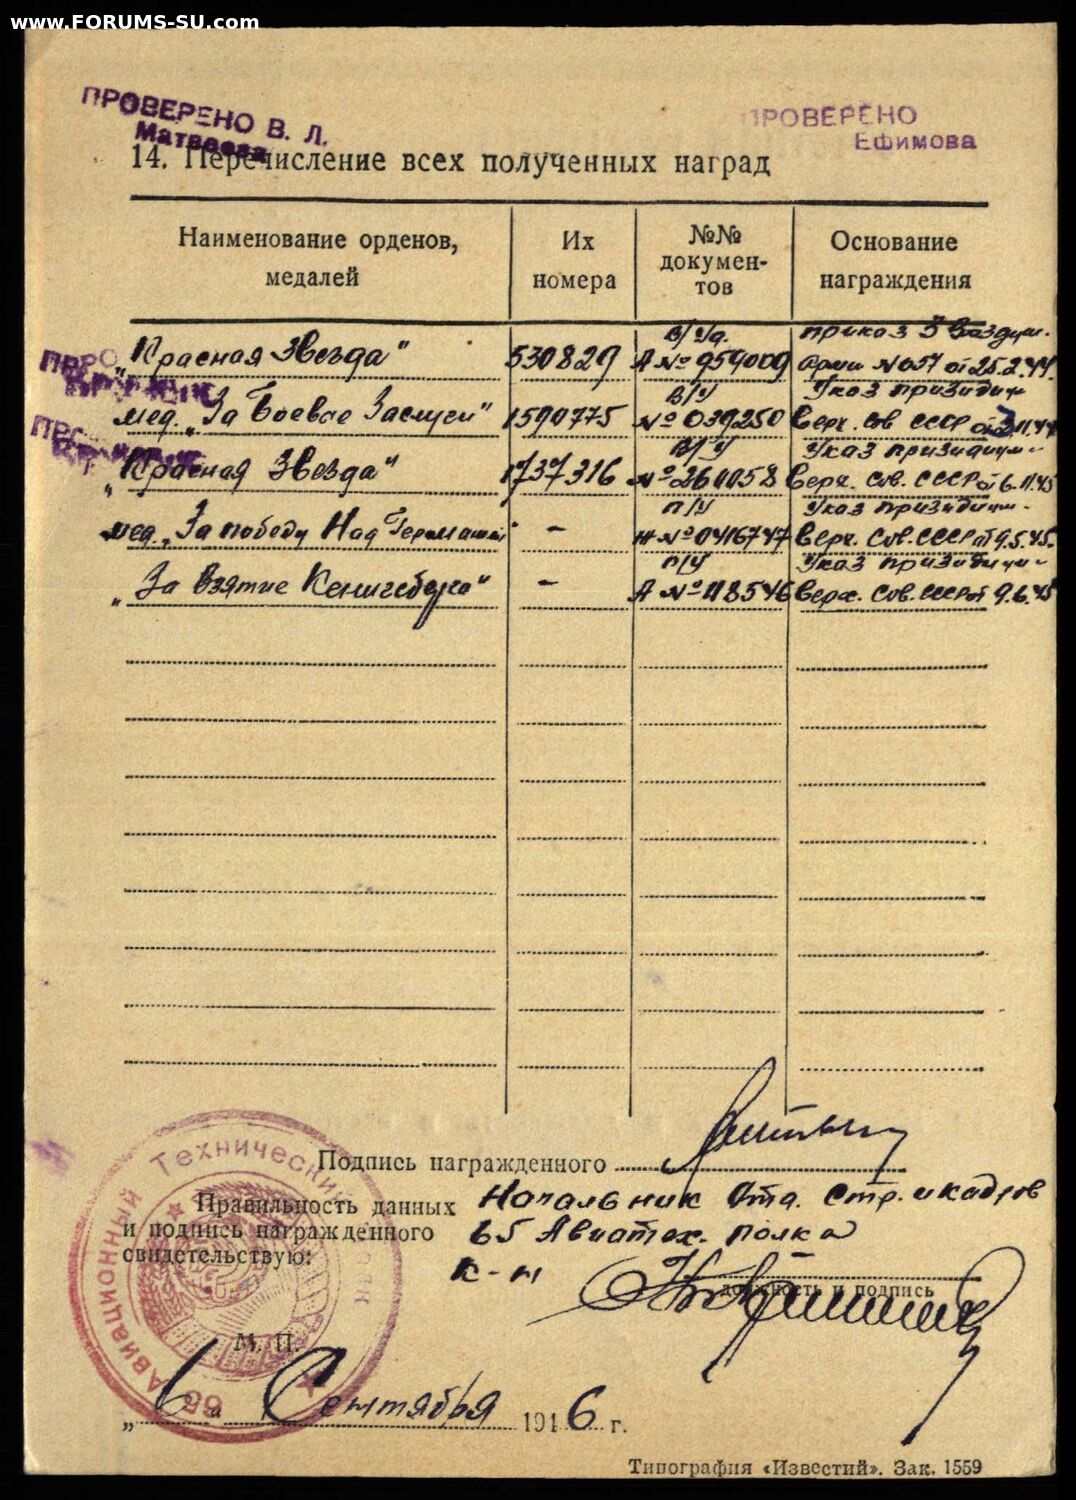 www.FORUMS-SU.com
ПРОВЕРЕНО В. Л.
Матвеева
ПРОВЕРЕНО
Ефимова
14. Перечисление всех полученных наград
Наименование орденов, медалей
Их номера
№№ документов
Основание награждения
„Красная Звезда" 530829 В/Уд. А №959009 приказ 3 Воздуш. Арми №057 от 25.2.44.
мед. „За Боевые Заслуги" 1590775 В/У №039250 Указ призидиум Верх. Сов СССР от 3.11.44
„Красная Звезда" 1737316 В/У №260058 Указ призидиум Верх. Сов. СССР от 6.11.45
мед. „За победу Над Германией" – П/У Н №0416747 Указ призидиум. Верх. Сов. СССР от 9.5.45.
„За Взятие Кенигсберга" – П/У А №118546 Указ призидиум Верх. Сов. СССР от 9.6.45
Подпись награжденного
Правильность данных
и подпись награжденного
свидетельствую:
Начальник Отд. Стр. и кадров
65 Авиатех. полка
к-н
должность и подпись
65 Авиационный Технический полк
М. П.
„6" Сентября 1946 г.
Типография «Известий». Зак. 1559